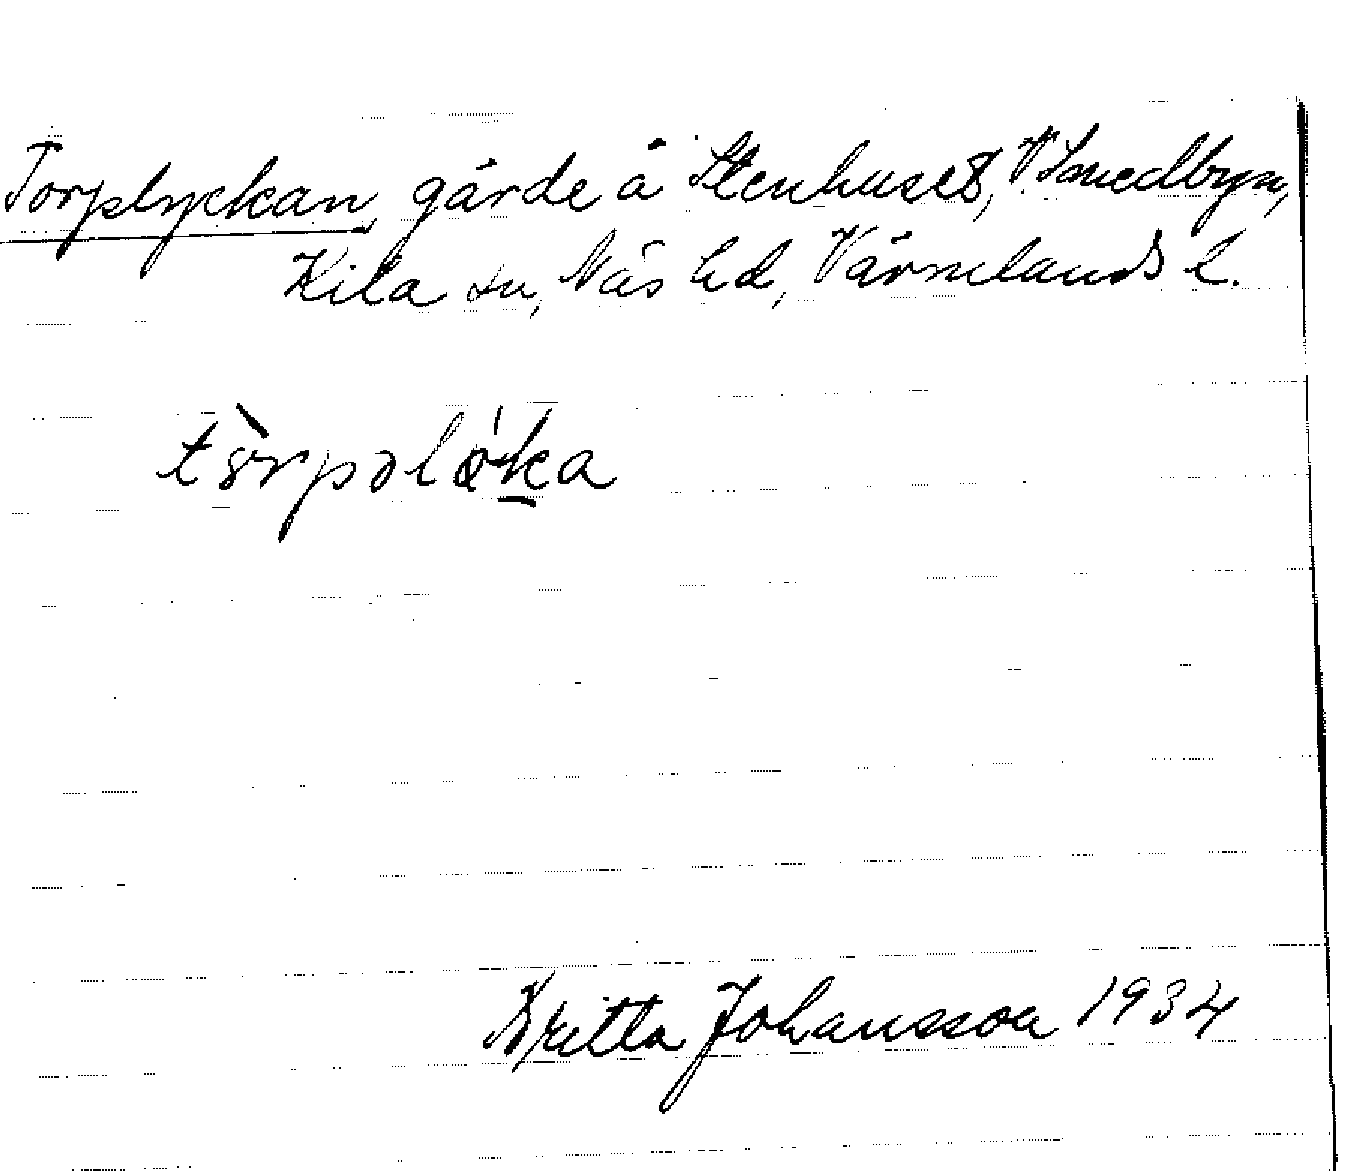 Torplyckan, gärde å Stenhuset, V. Smedbyn,
Kila sn, Näs hd, Värmlands l.
Britta Johansson 1934